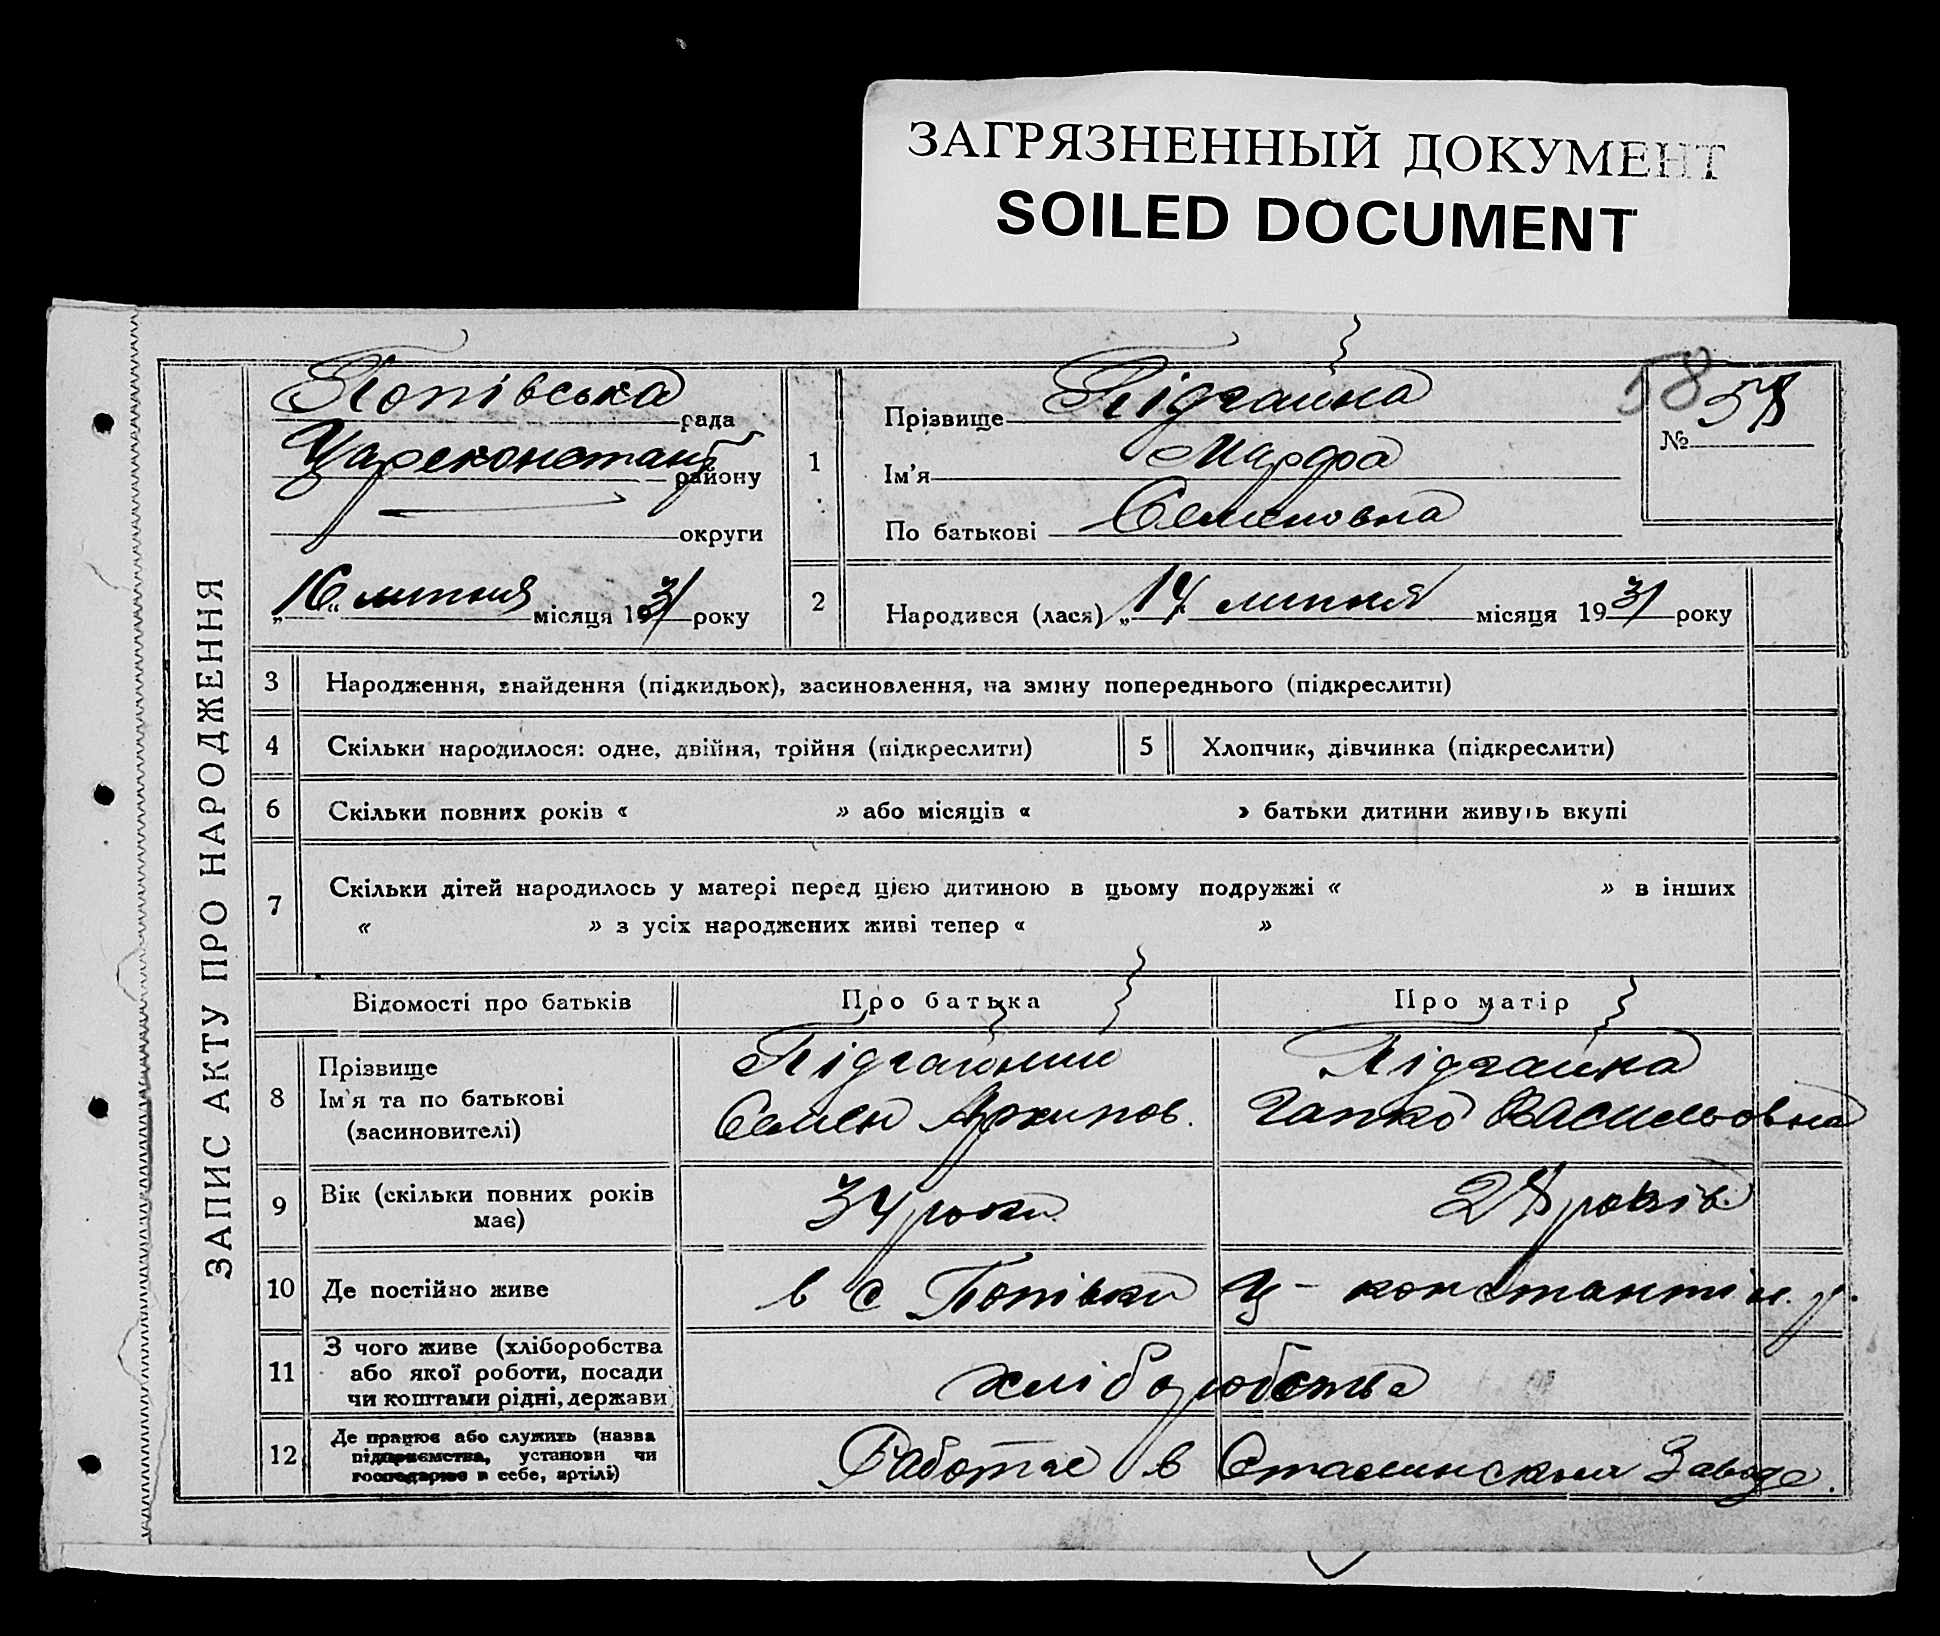 ЗАГРЯЗНЕННЫЙ ДОКУМЕНТ
SOILED DOCUMENT
ЗАПИС АКТУ ПРО НАРОДЖЕННЯ
Попівська рада
Цареконстант району
округи
„16“ липня місяця 1931 року
1
Прізвище Підгайна
Ім'я Марфа
По батькові Семеновна
58
№ 58
2
Народився (лася) „14 липня місяця 1931 року
3 Народження, знайдення (підкидьок), засиновлення, на зміну попереднього (підкреслити)
4 Скільки народилося: одне, двійня, трійня (підкреслити)
5 Хлопчик, дівчинка (підкреслити)
6 Скільки повних років « » або місяців « » батьки дитини живуть вкупі
7 Скільки дітей народилось у матері перед цією дитиною в цьому подружжі « » в інших
« » з усіх народжених живі тепер « »
Відомості про батьків Про батька Про матір
8 Прізвище
Ім'я та по батькові
(засиновителі)
Підгайний
Семен Архипов.
Підгайна
Гапка Васильовна
9 Вік (скільки повних років
має)
34 роки
28 років
10 Де постійно живе в с Попівки Ц-константін. р.
11 З чого живе (хліборобства
або якої роботи, посади
чи коштами рідні, держави)
хліборобства
12 Де працює або служить (назва
підприємства, установи чи
господарює в себе, артілі)
Работає в Сталинском Заводе.